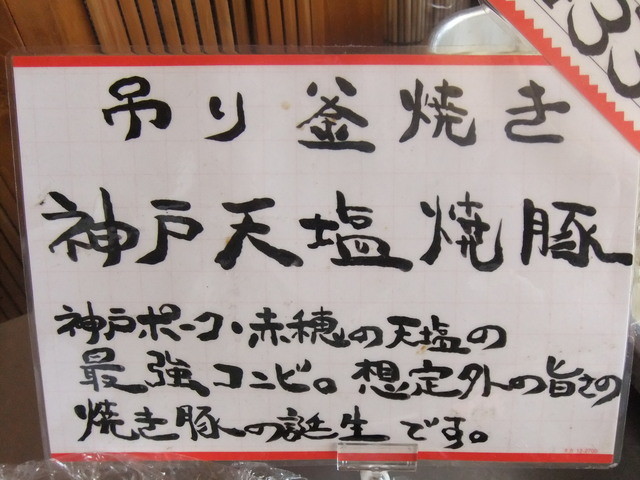 吊り釜焼き
神戸天塩焼豚
神戸ポーク・赤穂の天塩の
最強コンビ。想定外の旨さの
焼き豚の誕生です。